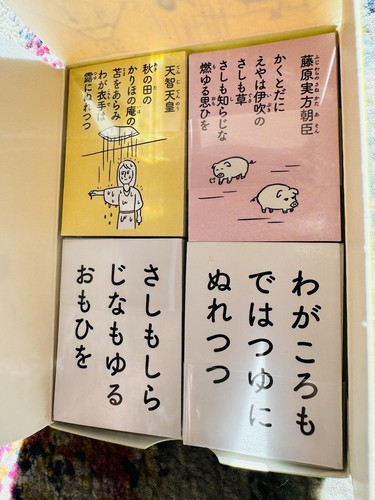 藤原実方朝臣
ふじわらのさねかたあそん
かくとだに
えやは伊吹の
いぶき
さしも草
ぐさ
さしも知らじな
燃ゆる思ひを
天智天皇
てんてんのう
秋の田の
かりほの庵の
苫をあらみ
わが衣手は
露にぬれつつ
わがころも
ではつゆに
ぬれつつ
さしもしら
じなもゆる
おもひを